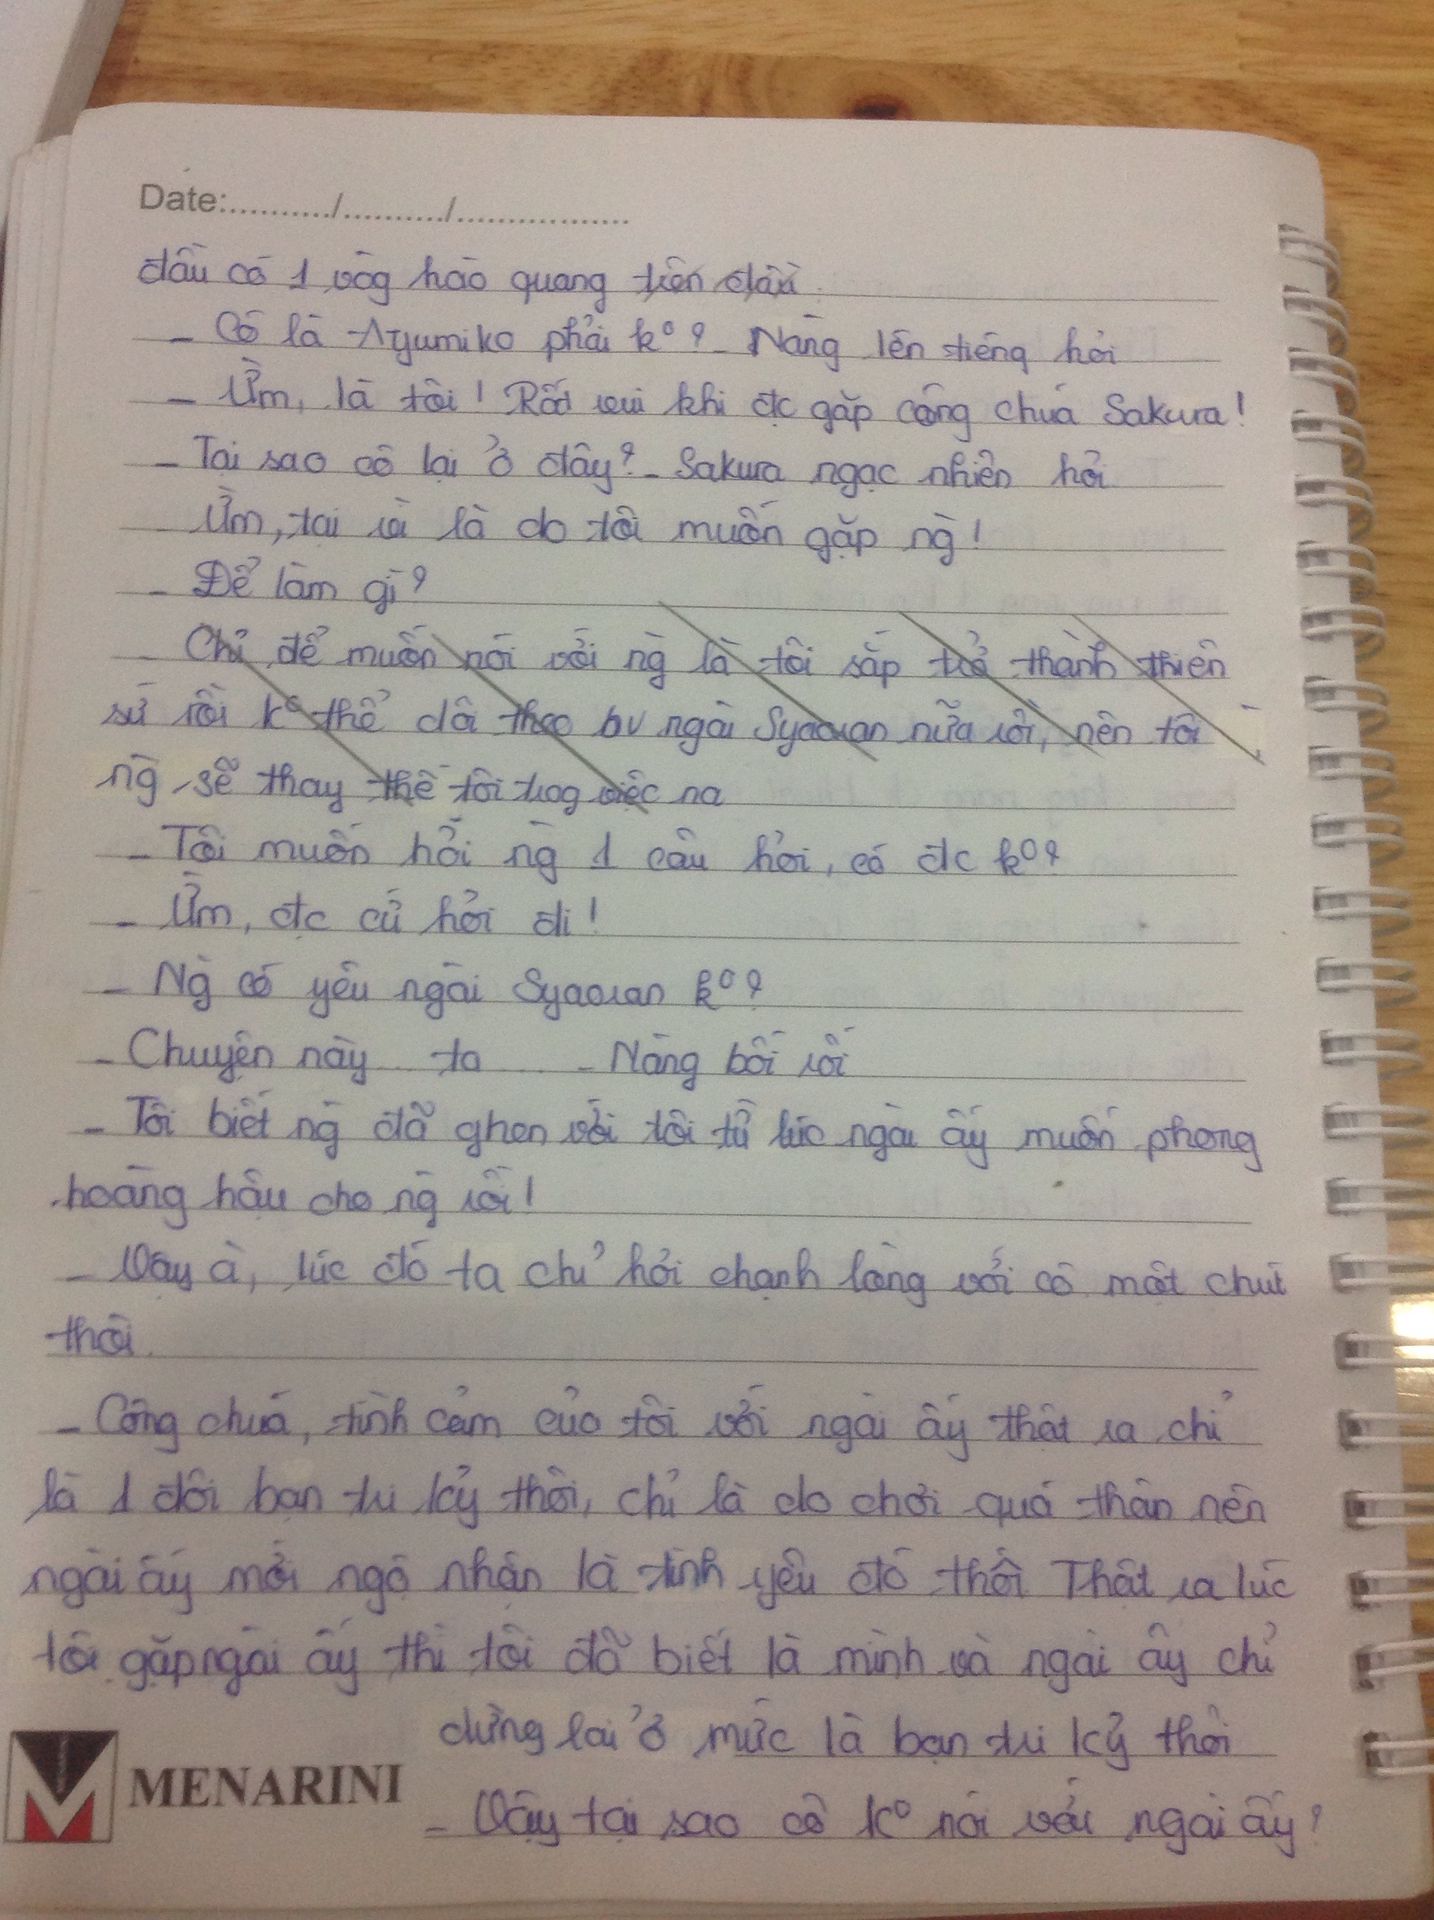 Date:.........../.........../.................
đầu có 1 vòg hào quang trên đầu
- Cô là Ayumiko phải kº? - Nàng lên tiếng hỏi
- Ừm, là tôi! Rất vui khi đc gặp công chúa Sakura!
- Tại sao cô lại ở đây? - Sakura ngạc nhiên hỏi
- Ừm, tại vì là do tôi muốn gặp ng`!
- Để làm gì?
- Chỉ để muốn nói với ng` là tôi sắp trở thành thiên
sứ rồi kº thể dõi theo bv ngài Syaoran nữa rồi, nên tôi
ng` sẽ thay thế tôi trog việc na
- Tôi muốn hỏi ng` 1 câu hỏi, có đc kº?
- Ừm, đc cứ hỏi đi!
- Ng` có yêu ngài Syaoran kº?
- Chuyện này ... ta ... - Nàng bối rối
- Tôi biết ng` đã ghen với tôi từ lúc ngài ấy muốn phong
hoàng hậu cho ng` rồi!
- Vậy à, lúc đó ta chỉ hơi chạnh lòng với cô một chút
thôi.
- Công chúa, tình cảm của tôi với ngài ấy thật ra chỉ
là 1 đôi bạn tri kỷ thôi, chỉ là do chơi quá thân nên
ngài ấy mới ngộ nhận là tình yêu đó thôi. Thật ra lúc
tôi gặp ngài ấy thì tôi đã biết là mình và ngài ấy chỉ
dừng lại ở mức là bạn tri kỷ thôi
- Vậy tại sao cô kº nói với ngài ấy?
MENARINI